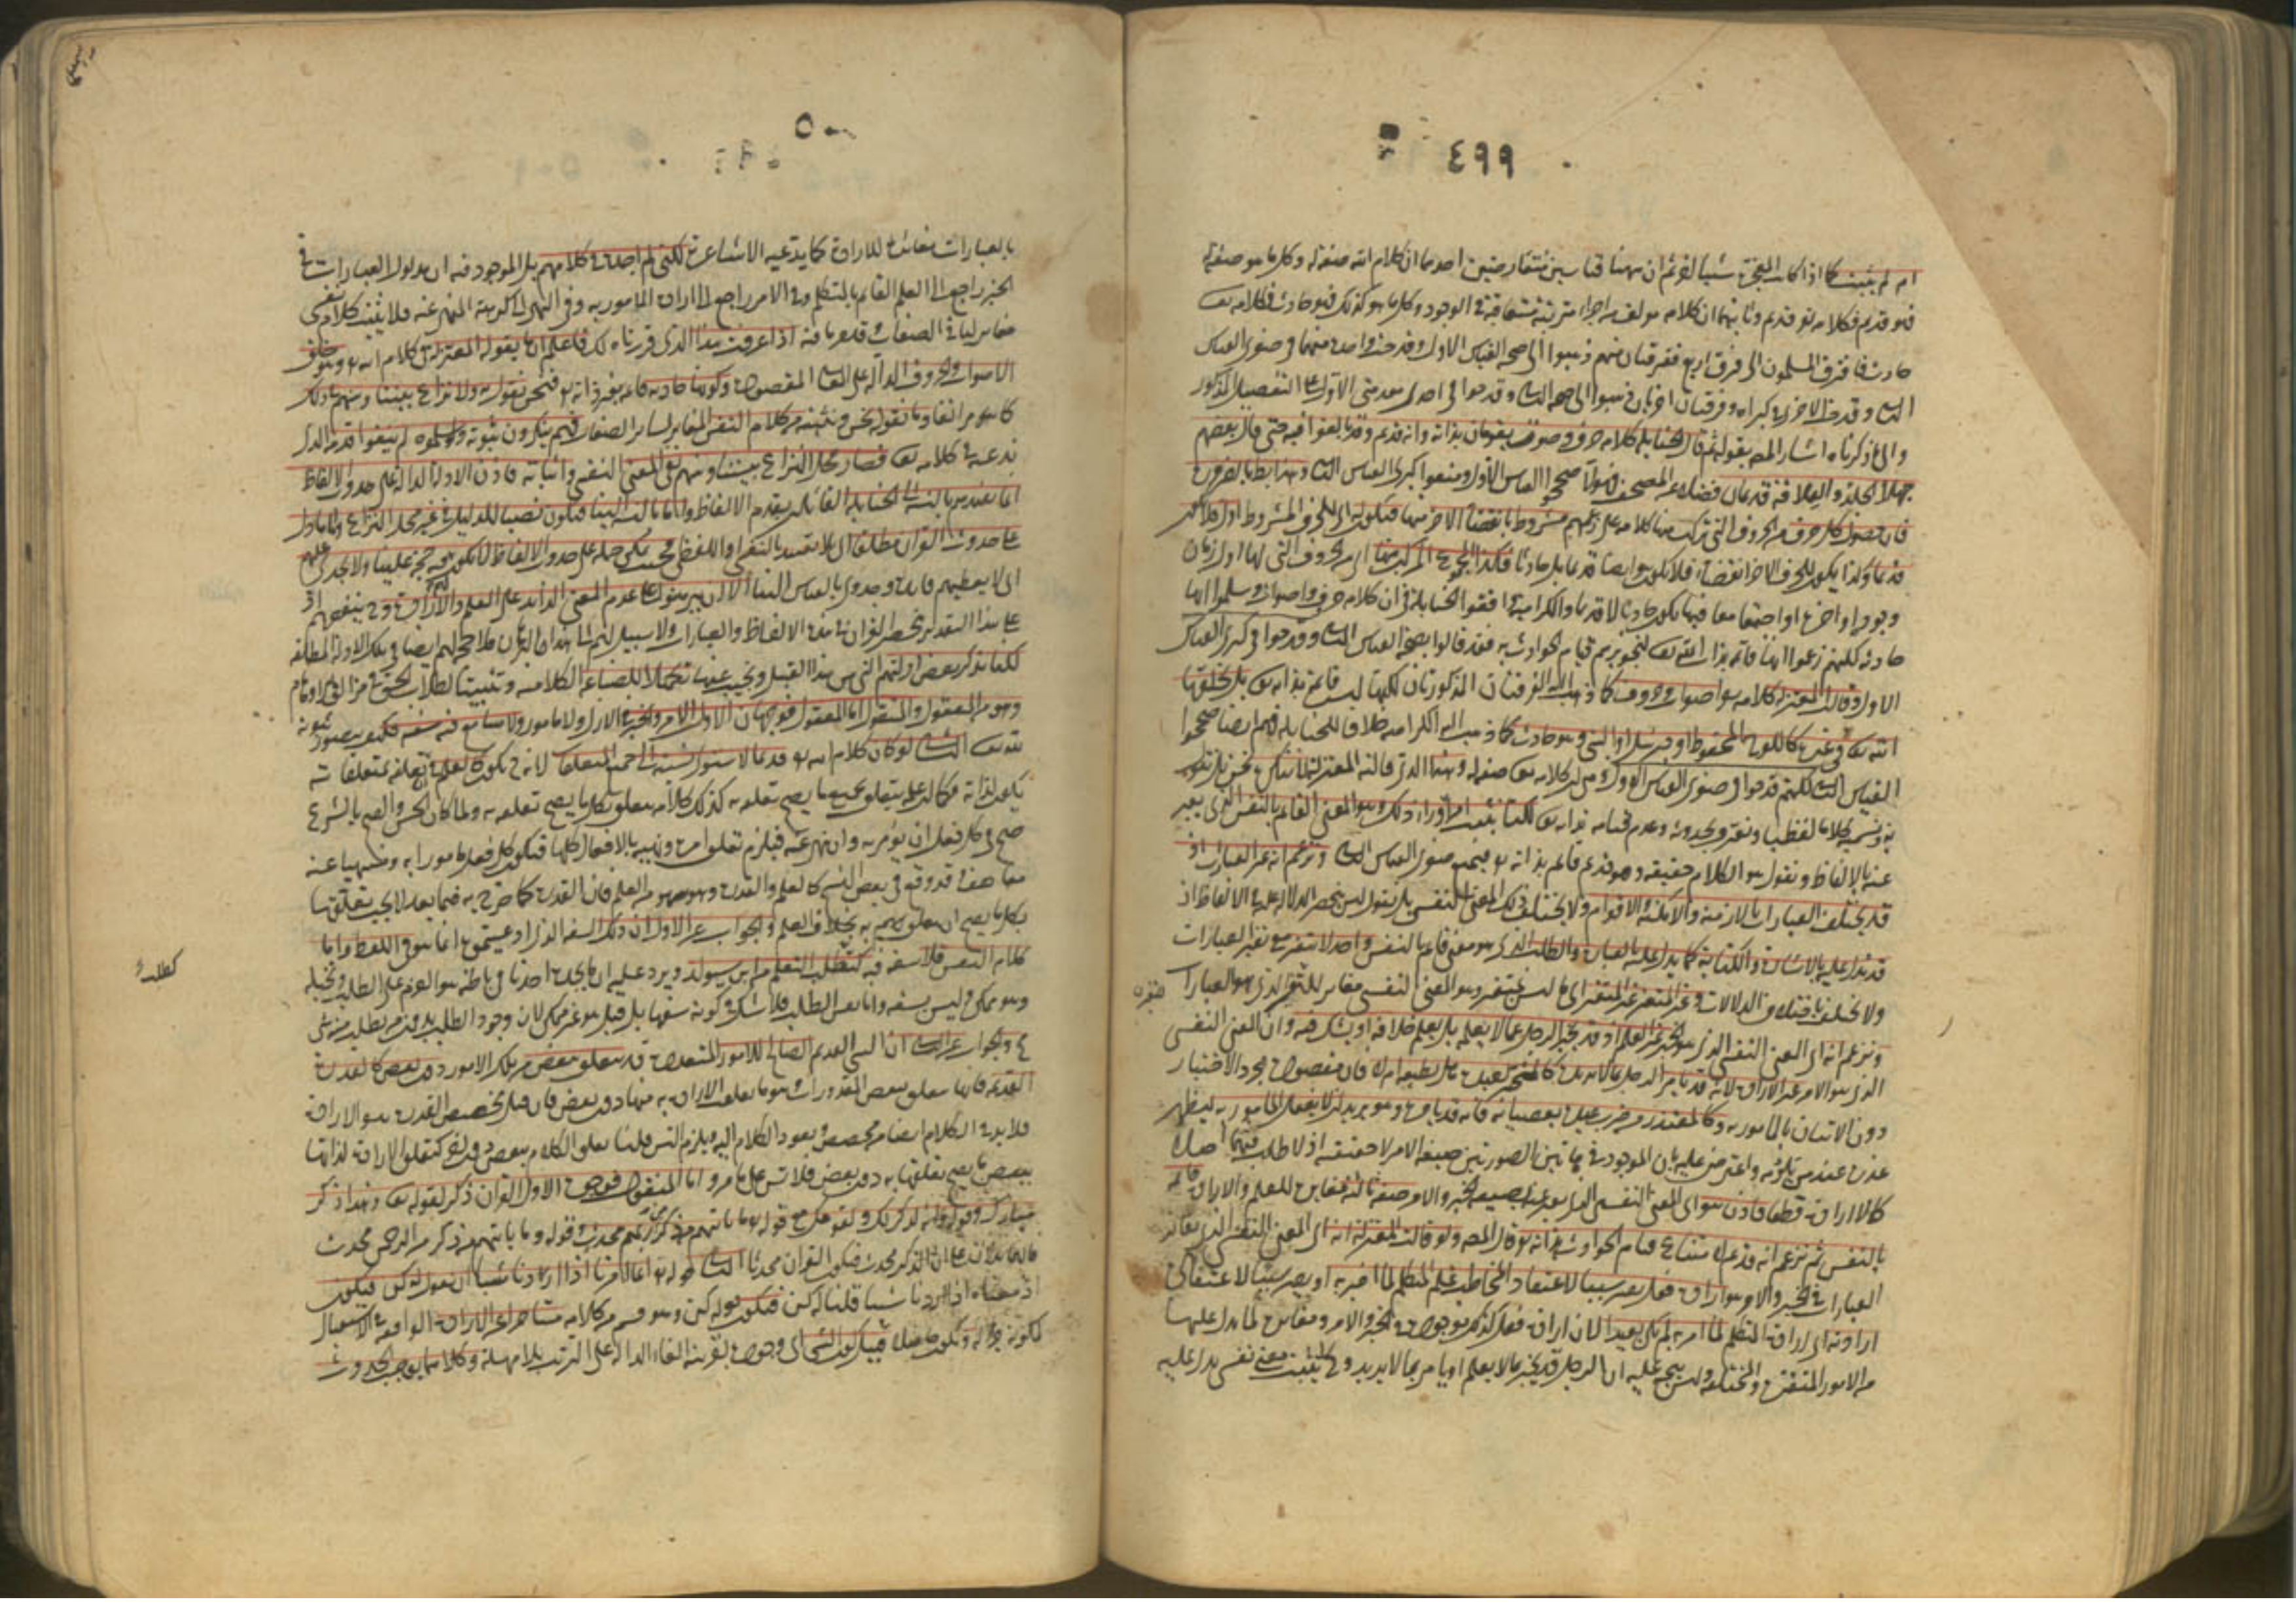 ٤٩٩
انه لم يثبت كما اذا كانت المعجزة شيئا اخر ثم ان ههنا قياسين متعارضين احدهما ان كلام الله صفة له وكل ما هو صفة له
فهو قديم فكلامه تع قديم وثانيهما ان كلامه مؤلف من اجزاء مترتبة متعاقبة في الوجود وكل ما هو كذلك فهو حادث فكلامه تع
حادث فافترق المسلمون الى فرق اربع ففرقتان منهم ذهبوا الى صحة القياس الاول وقدحت واحدة منهما في صغرى القياس
الثاني وقدحت الاخرى في كبراه وفرقتان اخريان ذهبوا الى صحة الثاني وقدحوا في احدى مقدمتي الاول على التفصيل المذكور
والى ما ذكرناه اشار المص بقوله ثم قال الحنابلة كلامه حرف وصوت يقومان بذاته وانه قديم وقد بالغوا فيه حتى قال بعضهم
جهلا الجلد والغلاف قديمان فضلا عن المصحف فهؤلاء صححوا القياس الاول ومنعوا كبرى القياس الثاني وهذا بط بالضرورة
فان حصول كل حرف من الحروف التي تركب منها كلامه على زعمهم مشروط بانقضاء الاخر منها فيكون له اي للحرف المشروط اول فلا يكون
قديما وكذا يكون للحرف الاخر انقضاء فلا يكون هو ايضا قديما بل حادثا فكذا المجموع المركب منها اي من الحروف التي لها اول زمان
وجود او اخره او اجتمعا معا فيها يكون حادثا لا قديما والكرامية وافقوا الحنابلة في ان كلامه حروف واصوات وسلموا انها
حادثة لكنهم زعموا انها قائمة بذات الله تع لتجويزهم قيام الحوادث به فقد قالوا بصحة القياس الثاني وقدحوا في كبرى القياس
الاول وقالت المعتزلة كلامه هو اصوات وحروف كما ذهب اليه الفرقتان المذكورتان لكنها ليست قائمة بذاته تع بل يخلقها
الله تع في غيره كاللوح المحفوظ او جبرئيل او النبي وهو حادث كما ذهب اليه الكرامية خلافا للحنابلة فهم ايضا صححوا
القياس الثاني لكنهم قدحوا في صغرى القياس الاول وهي ان كلامه تع صفة له وهذا الذي قالته المعتزلة لا ننكره نحن بل نقول
به ونسميه كلاما لفظيا ونعترف بحدوثه وعدم قيامه بذاته تع لكنا نثبت امرا وراء ذلك وهو المعنى القائم بالنفس الذي يعبر
عنه بالالفاظ ونقول هو الكلام حقيقة وهو قديم قائم بذاته تع فنمنع صغرى القياس الثاني ونزعم انه غير العبارات اذ
قد يختلف العبارات بالازمنة والامكنة والاقوام ولا يختلف ذلك المعنى النفسي بل نقول ليس ينحصر الدلالة عليه في الالفاظ اذ
قد يدل عليه بالاشارة والكتابة كما يدل عليه بالعبارة والطلب الذي هو معنى قائم بالنفس واحد لا يتغير مع تغير العبارات
ولا يختلف باختلاف الدلالات وغير المتغير غير المتغير اي ما ليس متغيرا وهو المعنى النفسي مغاير للمتغير الذي هو العبارات
ونزعم انه اي المعنى النفسي الذي هو الخبر غير العلم اذ قد يخبر الرجل عما لا يعلم بل يعلم خلافه او يشك فيه وان المعنى النفسي
الذي هو الامر غير الارادة لانه قد يامر الرجل بما لا يريده كالمختبر لعبده هل يطيعه ام لا فان مقصوده مجرد الاختبار
دون الاتيان بالمامور به وكالمعتذر من ضرب عبده بعصيانه فانه قد يامره وهو يريد ان لا يفعل المامور به ليظهر
عذره عند من يلومه واعترض عليه بان الموجود في هاتين الصورتين صيغة الامر لا حقيقته اذ لا طلب فيهما اصلا
كما لا ارادة قطعا فاذن هو اي المعنى النفسي الذي يعبر عنه بصيغة الخبر والامر صفة ثالثة مغايرة للعلم والارادة قائمة
بالنفس ثم نزعم انه قديم لامتناع قيام الحوادث بذاته تع قال المص ولو قالت المعتزلة انه اي المعنى النفسي الذي يغاير
العبارات في الخبر والامر هو ارادة فعل يصير سببا لاعتقاد المخاطب علم المتكلم بما اخبر به او يصير سببا لاعتقاده
ارادته اي ارادة المتكلم لما امر به لم يكن بعيدا لان ارادة فعل كذلك موجودة في الخبر والامر ومغايرة لما يدل عليها
من الامور المتغيرة والمختلفة وليس يتجه عليه ان الرجل قد يخبر بما لا يعلم او يامر بما لا يريد وح لا يثبت معنى نفسي يدل عليه
٥٠٠
بالعبارات مغاير للارادة كما يدعيه الاشاعرة لكني لم اجده في كلامهم بل الموجود فيه ان مدلول العبارات في
الخبر راجع الى العلم القائم بالمتكلم وفي الامر راجع الى ارادة المامور به وفي النهي الى كراهة المنهي عنه فلا يثبت كلام نفسي
مغاير لباقي الصفات وقد مر ما فيه اذا عرفت هذا الذي قررناه لك فاعلم ان ما يقوله المعتزلة في كلام الله تع وهو خلق
الاصوات والحروف الدالة على المعاني المقصودة وكونها حادثة قائمة بغير ذاته تع فنحن نقول به ولا نزاع بيننا وبينهم في ذلك
كما مر انفا وما نقوله نحن ونثبته من كلام النفس المغاير لسائر الصفات فهم ينكرون ثبوته ولو سلموه لم ينفوا قدمه الذي
ندعيه في كلامه تع فصار محل النزاع بيننا وبينهم نفي المعنى النفسي واثباته فاذن الادلة الدالة على حدوث الالفاظ
انما تفيدهم بالنسبة الى الحنابلة القائلين بقدم الالفاظ واما بالنسبة الينا فيكون نصبا للدليل في غير محل النزاع واما ما دل
على حدوث القران مطلقا اي بلا تقييد بالنفسي او اللفظي فحيث يمكن حمله على حدوث الالفاظ لا يكون لهم فيه حجة علينا ولا يجدي عليهم
اي لا يعطيهم فائدة وجدوى بالقياس الينا الا ان يبرهنوا على عدم المعنى الزائد على العلم والارادة وح ينفعهم اذ
على هذا التقدير ينحصر القران في هذه الالفاظ والعبارات ولا سبيل لهم الى هذا البرهان فلا حجة لهم ايضا في تلك الادلة المطلقة
لكنا نذكر بعض ادلتهم التي من هذا القبيل ونجيب عنها تكميلا للصناعة الكلامية وتثبيتا لطلاب الحق في مزال الاقدام
وهو من المعقول والمنقول اما المعقول فوجهان الاول الامر والخبر في الازل ولا مامور ولا سامع فيه سفه فكيف يتصور ثبوته
لله تع الثاني لو كان كلام الله تع قديما لاستوى نسبته الى جميع المتعلقات لانه ح يكون كالعلم في ان تعلقه بمتعلقاته
يكون لذاته فكما ان علمه يتعلق بجميع ما يصح تعلقه به كذلك كلامه يتعلق بكل ما يصح تعلقه به ولما كان الحسن والقبح بالشرع
صح في كل فعل ان يؤمر به وان ينهى عنه فيلزم تعلق امره ونهيه بالافعال كلها فيكون كل فعل مامورا به ومنهيا عنه
معا هف
بكل ما يصح ان يتعلق به بخلاف العلم والجواب عن الاول ان ذلك السفه الذي ادعيتموه انما هو في اللفظ واما
كلام النفس فلا سفه فيه كطلب التعلم من ابن سيولد ويرد عليه ان ما يجده احدنا في باطنه هو العزم على الطلب وتخيله
وهو ممكن وليس بسفه واما نفس الطلب فلا شك في كونه سفها بل قيل هو غير ممكن لان وجود الطلب بدون من يطلب منه شيء
مح والجواب عن الثاني ان الشيء القديم الصالح للامور المتعددة قد يتعلق ببعض من تلك الامور دون بعض كالقدرة
القديمة فانها تتعلق ببعض المقدورات وهو ما تعلقت الارادة به منها دون بعض فان قيل مخصص القدرة هو الارادة
فلا بد في الكلام ايضا من مخصص ويعود الكلام اليه ويلزم التس قلنا تعلق الكلام ببعض دون اخر كتعلق الارادة لذاتها
ببعض ما يصح تعلقها به دون بعض فلا تس على ما مر واما المنقول فوجوه الاول القران ذكر لقوله تع وهذا ذكر
مبارك وقوله وانه لذكر لك ولقومك مع قوله تع ما ياتيهم من ذكر من ربهم محدث وقوله وما ياتيهم من ذكر من الرحمن محدث
فانهما يدلان على ان الذكر محدث فيكون القران محدثا الثاني قوله تع انما امرنا اذا اردنا شيئا ان نقول له كن فيكون
اذ معناه اذا اردنا شيئا قلنا له كن فيكون فقوله كن وهو قسم من كلامه متاخر عن الارادة الواقعة في الاستقبال
لكونه جزاء له ويكون حاصلا قبيل كون الشيء اي وجوده بقرينة الفاء الدالة على الترتيب بلا مهلة وكلاهما يوجب الحدوث